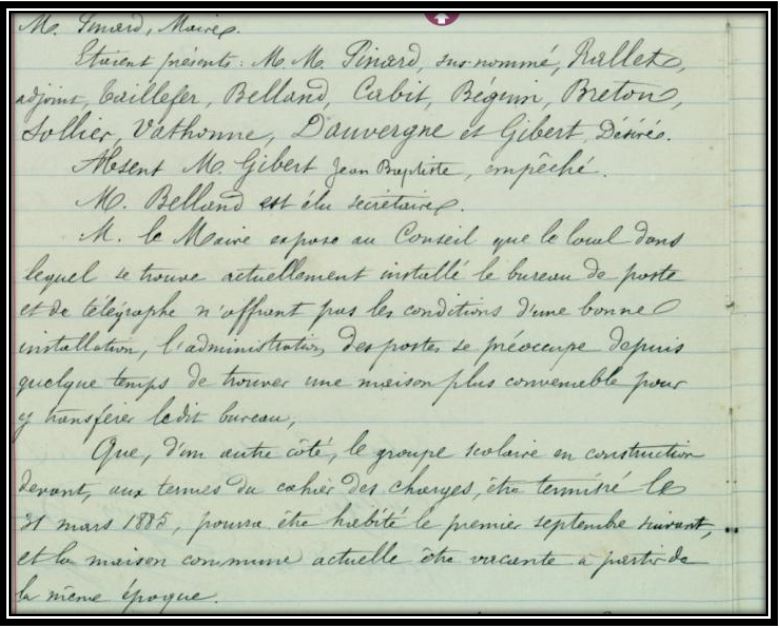 M. Pinard, Maire.
Etaient présents : M. M. Pinard, sus-nommé, Rallet,
adjoint, Taillefer, Belland, Cabit, Béguin, Breton,
Sollier, Vathonne, Dauvergne et Gibert, Désiré.
Absent M. Gibert Jean Baptiste, empêché.
M. Belland est élu secrétaire.
M. le Maire expose au Conseil que le local dans
lequel se trouve actuellement installé le bureau de poste
et de télégraphe n'offrant pas les conditions d'une bonne
installation, l'administration des postes se préoccupe depuis
quelque temps de trouver une maison plus convenable pour
y transférer ledit bureau,
Que, d'un autre côté, le groupe scolaire en construction
devant, aux termes du cahier des charges, être terminé le
31 mars 1885, pourra être habité le premier septembre suivant,
et la maison commune actuelle être vacante à partir de
la même époque.